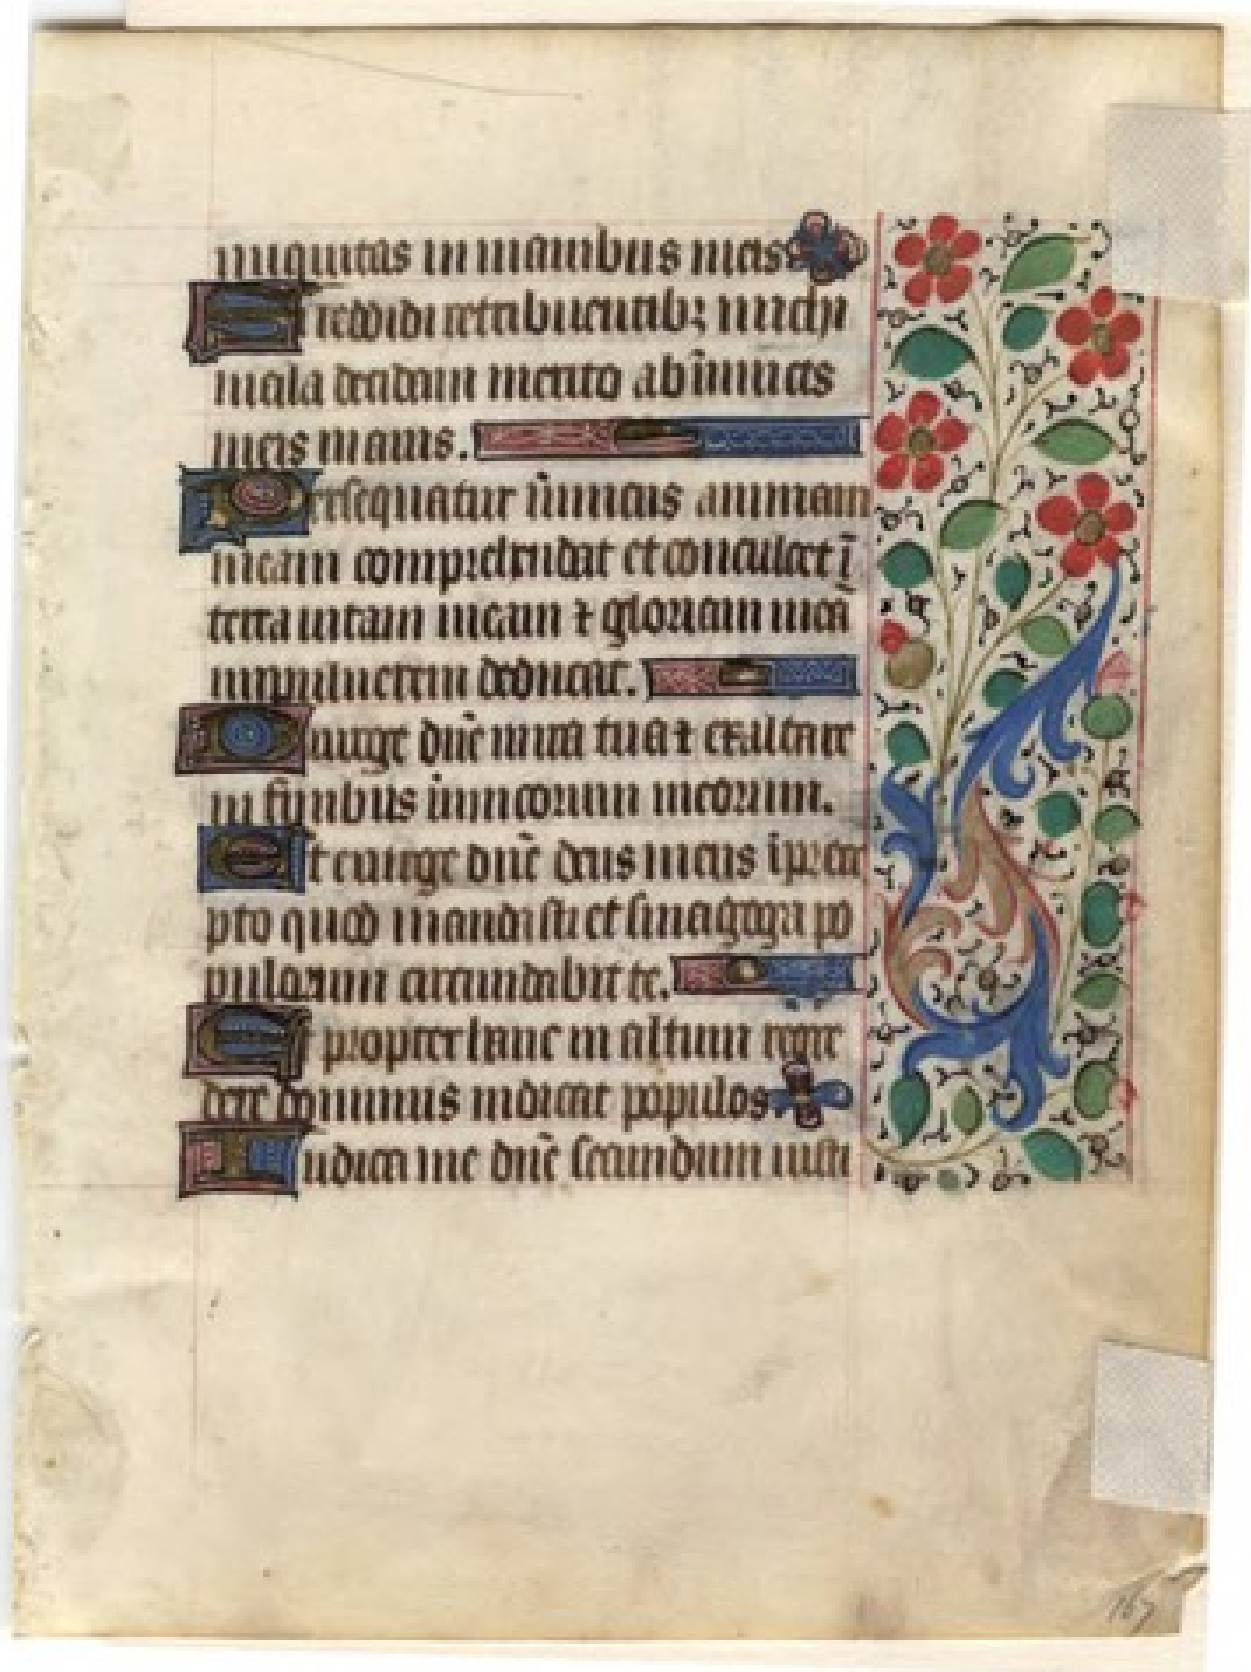 iniquitas in manibus meis.
Si reddidi retribuentibꝫ michi
mala decidam merito ab inimicis
meis inanis.
Persequatur inimicus animam
meam comprehendat et conculcet ī
terra uitam meam ⁊ gloriam meā
in puluerem deducat.
Exurge dñe in ira tua ⁊ exaltare
in finibus inimicorum meorum.
Et exurge dñe deus meus ī prece
pto quod mandasti et sinagoga po
pulorum circundabit te.
Et propter hanc in altum regre
dere dominus iudicat populos.
Iudica me dñe secundum iusti
167